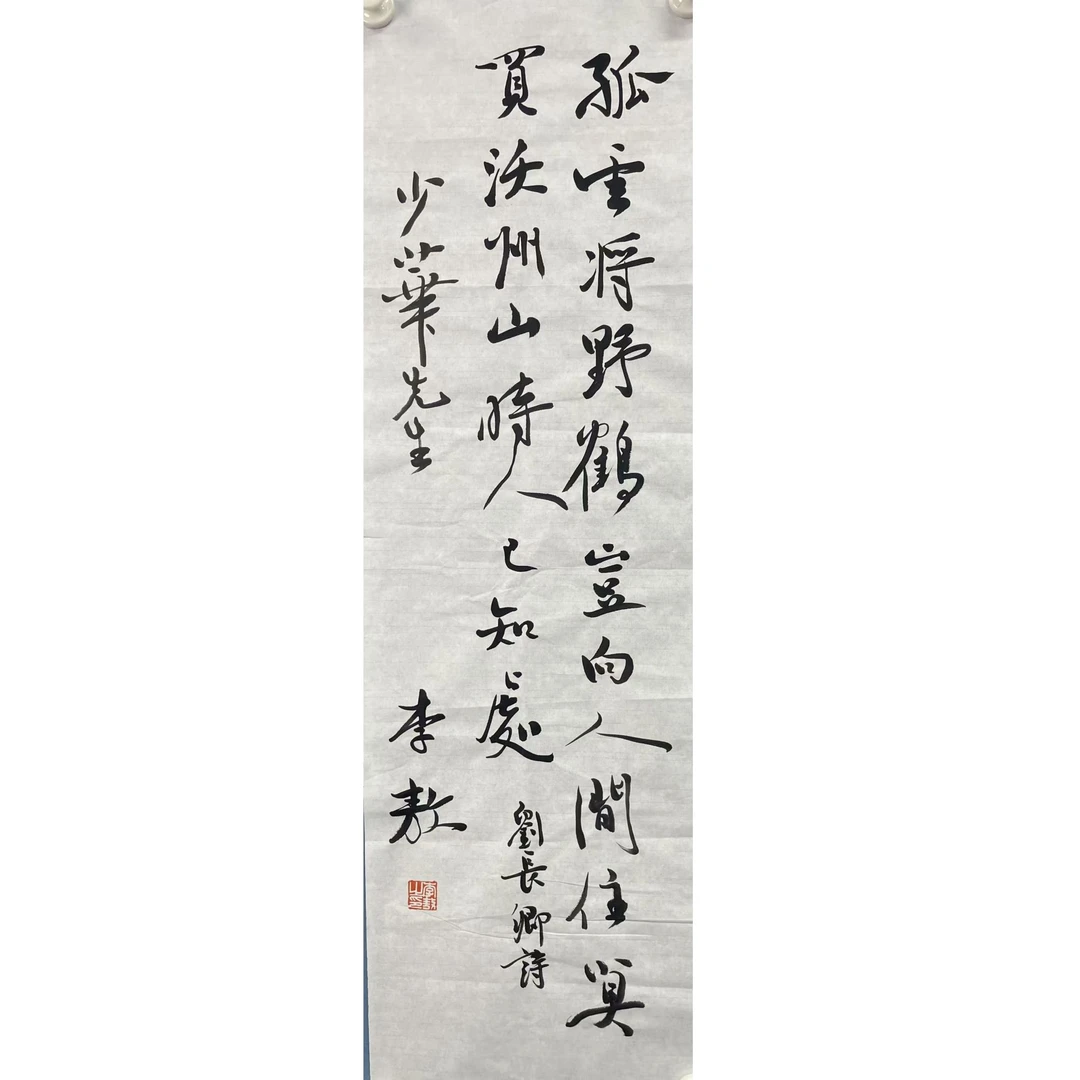 孤雲将野鶴豈向人間住莫
買沃州山時人已知處 劉長卿詩
少華先生 李敖
李敖之印